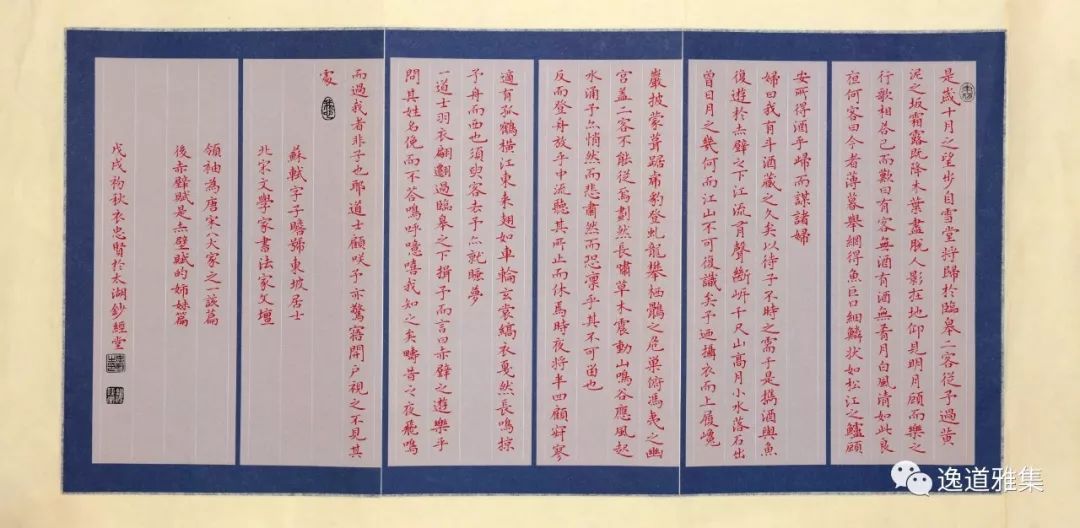 是歲十月之望步自雪堂將歸於臨皋二客從予過黃
泥之坂霜露既降木葉盡脫人影在地仰見明月顧而樂之
行歌相答已而歎曰有客無酒有酒無肴月白風清如此良
夜何客曰今者薄暮舉網得魚巨口細鱗狀如松江之鱸顧
安所得酒乎歸而謀諸婦
婦曰我有斗酒藏之久矣以待子不時之需于是攜酒與魚
復遊於赤壁之下江流有聲斷岸千尺山高月小水落石出
曾日月之幾何而江山不可復識矣予迺攝衣而上履巉
巖披蒙茸踞虎豹登虬龍攀栖鶻之危巢俯馮夷之幽
宮蓋二客不能從焉劃然長嘯草木震動山鳴谷應風起
水涌予亦悄然而悲肅然而恐凛乎其不可留也
反而登舟放乎中流聽其所止而休焉時夜將半四顧寂寥
適有孤鶴橫江東來翅如車輪玄裳縞衣戛然長鳴掠
予舟而西也須臾客去予亦就睡夢
一道士羽衣翩翻過臨皋之下揖予而言曰赤壁之遊樂乎
問其姓名俛而不答嗚呼噫嘻我知之矣疇昔之夜飛鳴
而過我者非子也耶道士顧咲予亦驚寤開户視之不見其
處
蘇軾字子瞻號東坡居士
北宋文學家書法家文壇
領袖為唐宋八大家之一該篇
後赤壁賦是赤壁賦的姊妹篇
戊戌初秋衣忠賢於太湖鈔經堂
逸道雅集